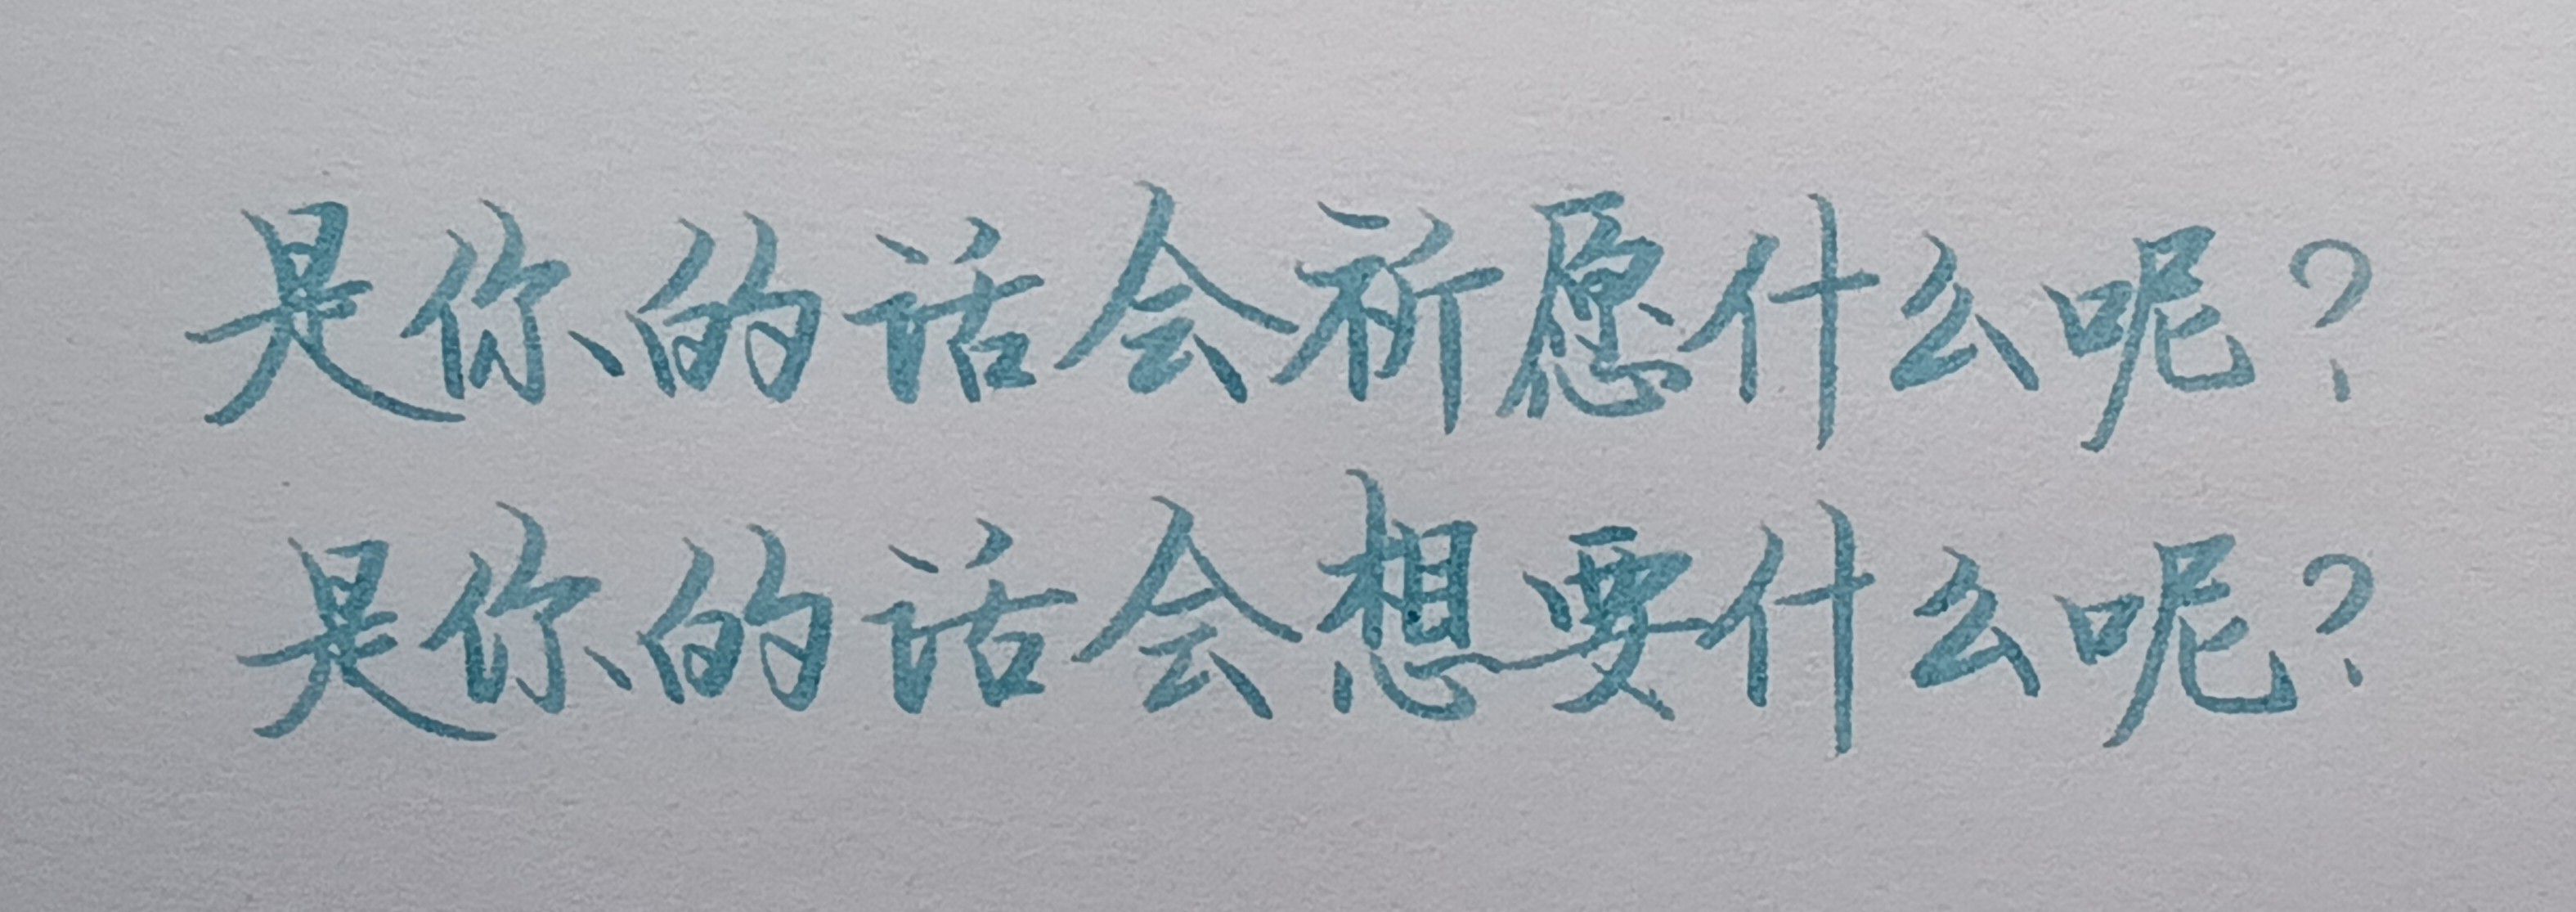 是你的话会祈愿什么呢？
是你的话会想要什么呢？